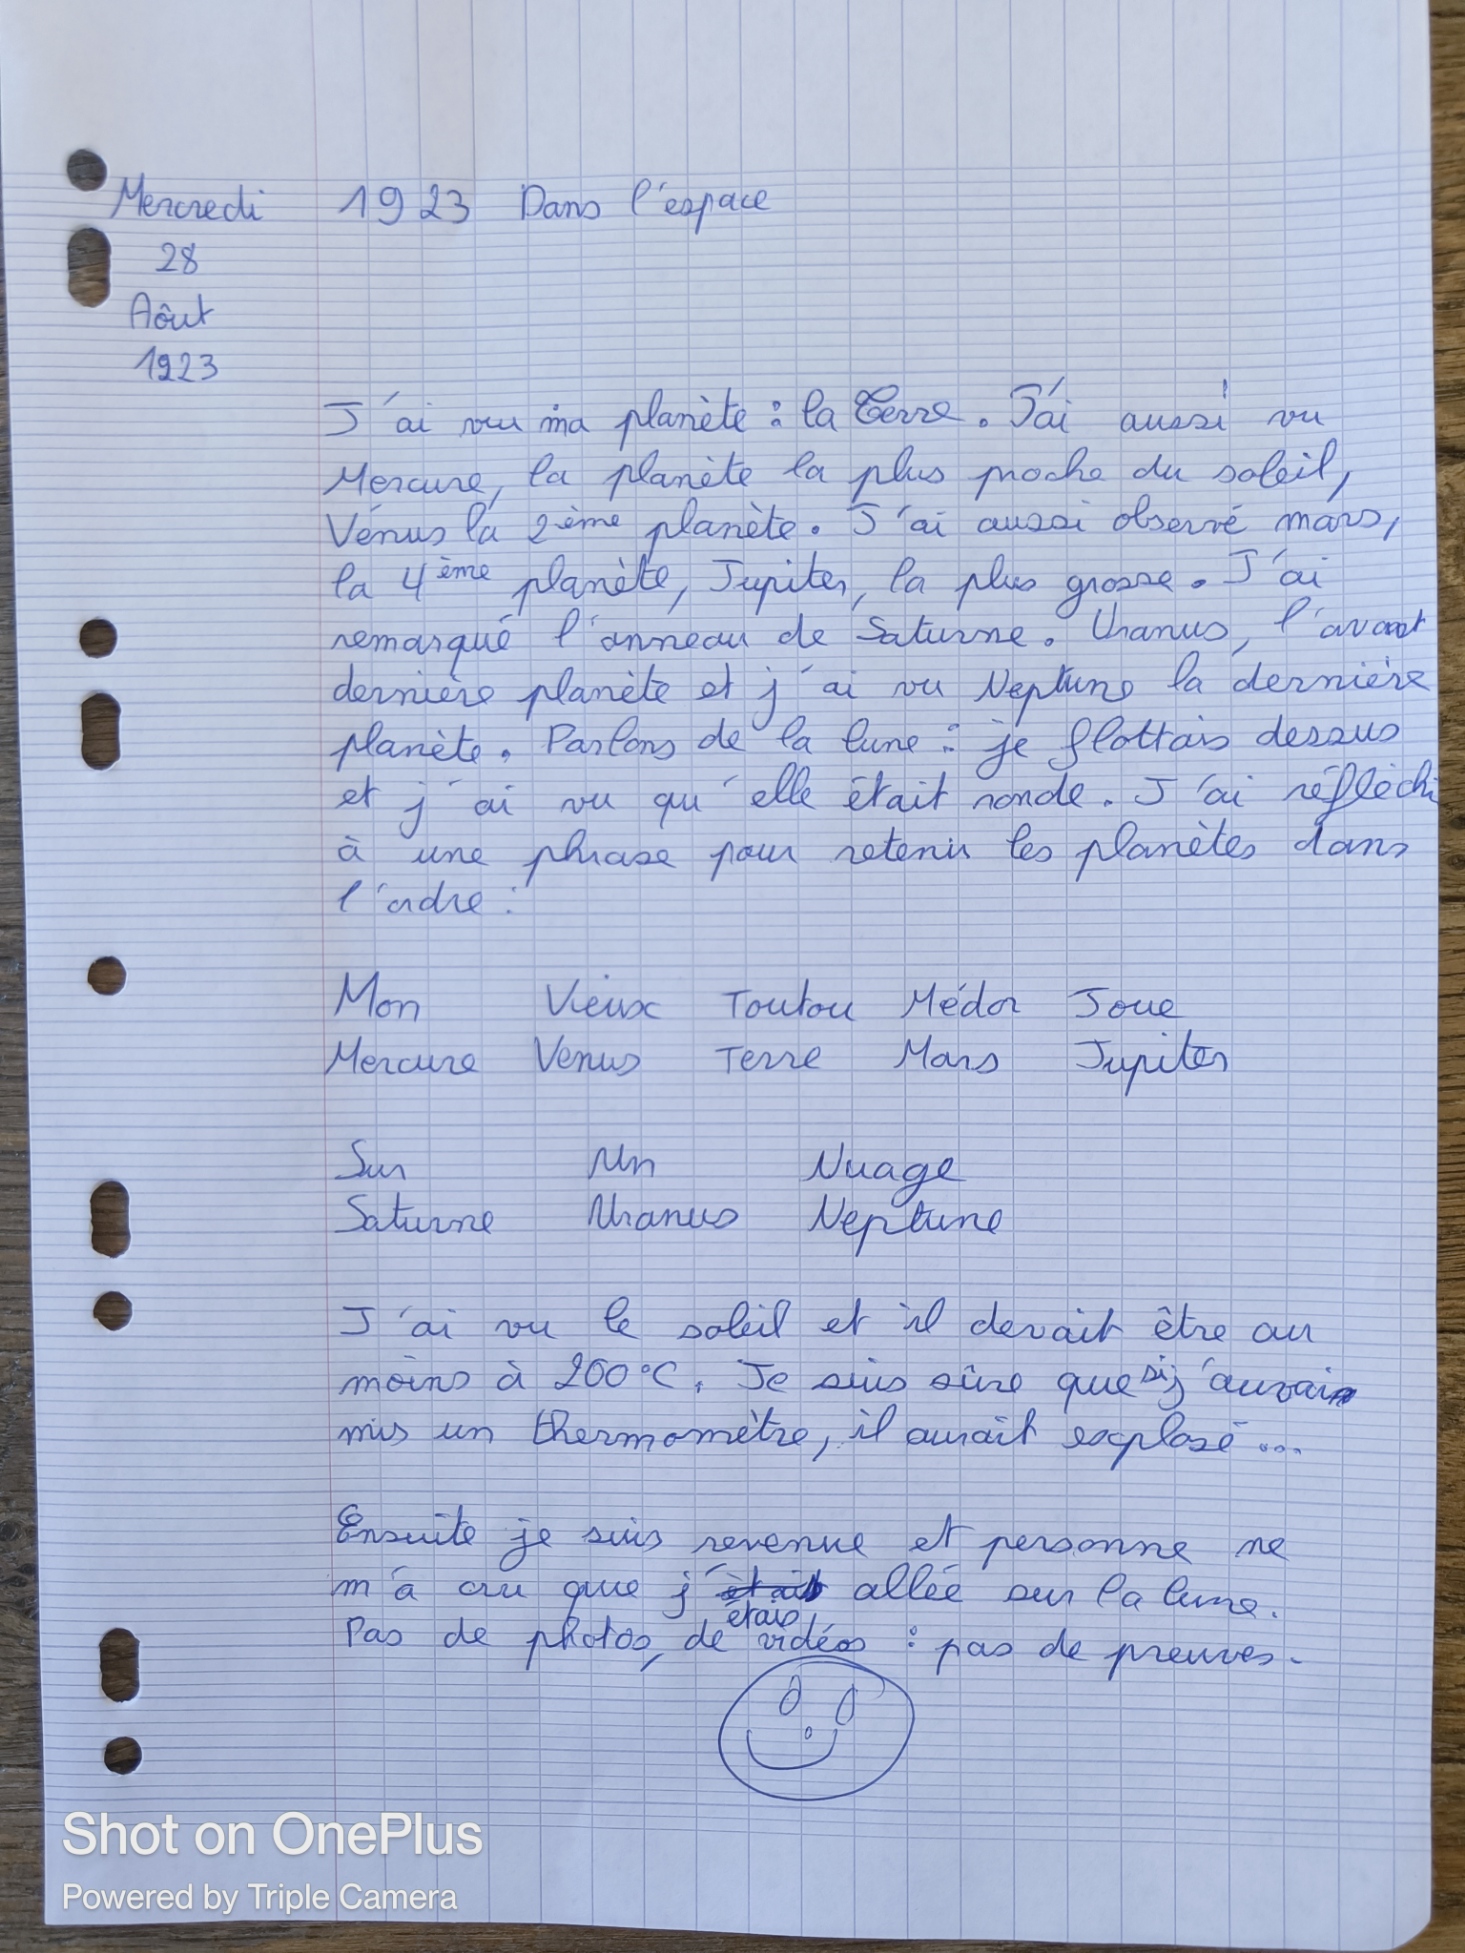 Mercredi 1923 Dans l'espace
28
Aôut
1923
J'ai vu ma planète : la Terre. J'ai aussi vu
Mercure, la planète la plus proche du soleil,
Vénus la 2ème planète. J'ai aussi observé mars,
la 4ème planète, Jupiter, la plus grosse. J'ai
remarqué l'anneau de Saturne. Uranus, l'avant
dernière planète et j'ai vu Neptune la dernière
planète. Parlons de la lune : je flottais dessus
et j'ai vu qu'elle était ronde. J'ai réfléchi
à une phrase pour retenir les planètes dans
l'ordre :
Mon Vieux Toutou Médor Joue
Mercure Venus Terre Mars Jupiter
Sur Un Nuage
Saturne Uranus Neptune
J'ai vu le soleil et il devait être au
moins à 200°C. Je suis sûre que si j'aurais
mis un thermomètre, il aurait explosé...
Ensuite je suis revenue et personne ne
m'a cru que j'étais allée sur la lune.
Pas de photos, de vidéos : pas de preuves.
Shot on OnePlus
Powered by Triple Camera